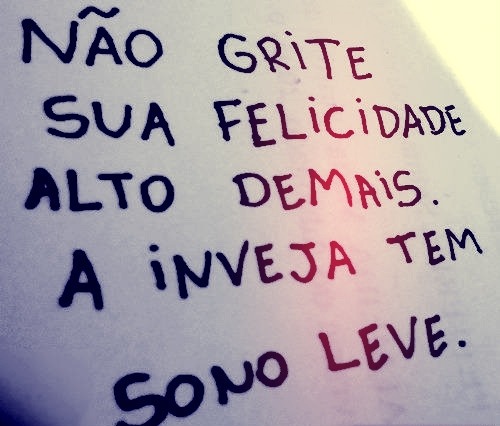 NÃO GRITE
SUA FELICIDADE
ALTO DEMAIS.
A INVEJA TEM
SONO LEVE.